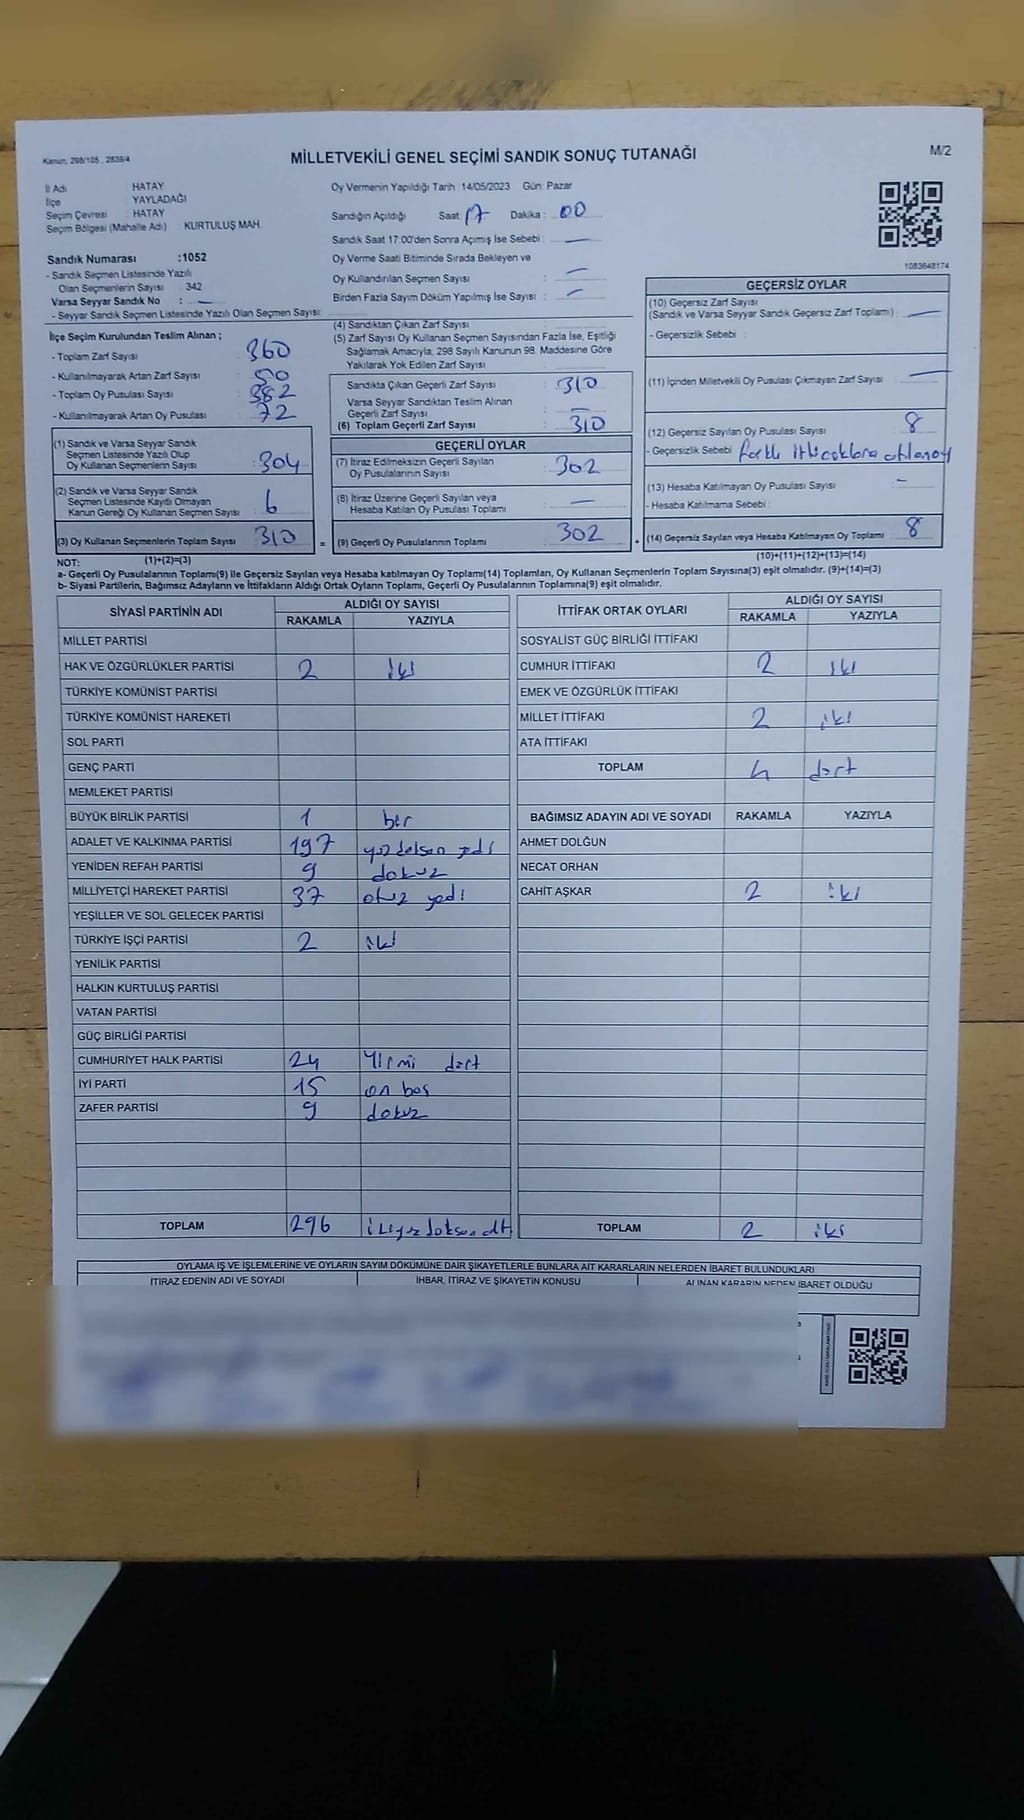 Kanun, 298/105 , 2839/4
MİLLETVEKİLİ GENEL SEÇİMİ SANDIK SONUÇ TUTANAĞI
M/2
İl Adı HATAY
İlçe YAYLADAĞI
Seçim Çevresi : HATAY
Seçim Bölgesi (Mahalle Adı) : KURTULUŞ MAH.
Sandık Numarası :1052
- Sandık Seçmen Listesinde Yazılı
Olan Seçmenlerin Sayısı 342
Varsa Seyyar Sandık No : —
- Seyyar Sandık Seçmen Listesinde Yazılı Olan Seçmen Sayısı
Oy Vermenin Yapıldığı Tarih :14/05/2023 Gün: Pazar
Sandığın Açıldığı Saat: 17 Dakika : 00
Sandık Saat 17:00'den Sonra Açımış İse Sebebi : —
Oy Verme Saati Bitiminde Sırada Bekleyen ve
Oy Kullandırılan Seçmen Sayısı : —
Birden Fazla Sayım Döküm Yapılmış İse Sayısı : —
1083648174
İlçe Seçim Kurulundan Teslim Alınan ;
- Toplam Zarf Sayısı : 360
- Kullanılmayarak Artan Zarf Sayısı : 50
- Toplam Oy Pusulası Sayısı : 382
- Kullanılmayarak Artan Oy Pusulası : 72
(1) Sandık ve Varsa Seyyar Sandık
Seçmen Listesinde Yazılı Olup
Oy Kullanan Seçmenlerin Sayısı : 304
(2) Sandık ve Varsa Seyyar Sandık
Seçmen Listesinde Kayıtlı Olmayan
Kanun Gereği Oy Kullanan Seçmen Sayısı : 6
(3) Oy Kullanan Seçmenlerin Toplam Sayısı : 310
(4) Sandıktan Çıkan Zarf Sayısı
(5) Zarf Sayısı Oy Kullanan Seçmen Sayısından Fazla İse, Eşitliği
Sağlamak Amacıyla, 298 Sayılı Kanunun 98. Maddesine Göre
Yakılarak Yok Edilen Zarf Sayısı
Sandıkta Çıkan Geçerli Zarf Sayısı : 310
Varsa Seyyar Sandıktan Teslim Alınan
Geçerli Zarf Sayısı : —
(6) Toplam Geçerli Zarf Sayısı : 310
GEÇERLİ OYLAR
(7) İtiraz Edilmeksizin Geçerli Sayılan
Oy Pusulalarının Sayısı : 302
(8) İtiraz Üzerine Geçerli Sayılan veya
Hesaba Katılan Oy Pusulası Toplamı : —
= (9) Geçerli Oy Pusulalarının Toplamı : 302
GEÇERSİZ OYLAR
(10) Geçersiz Zarf Sayısı
(Sandık ve Varsa Seyyar Sandık Geçersiz Zarf Toplamı) : —
- Geçersizlik Sebebi :
(11) İçinden Milletvekili Oy Pusulası Çıkmayan Zarf Sayısı : —
(12) Geçersiz Sayılan Oy Pusulası Sayısı : 8
- Geçersizlik Sebebi farklı ittifaklara atılan oy
(13) Hesaba Katılmayan Oy Pusulası Sayısı : —
- Hesaba Katılmama Sebebi :
+ (14) Geçersiz Sayılan veya Hesaba Katılmayan Oy Toplamı : 8
NOT: (1)+(2)=(3)
(10)+(11)+(12)+(13)=(14)
a- Geçerli Oy Pusulalarının Toplamı(9) ile Geçersiz Sayılan veya Hesaba katılmayan Oy Toplamı(14) Toplamları, Oy Kullanan Seçmenlerin Toplam Sayısına(3) eşit olmalıdır. (9)+(14)=(3)
b- Siyasi Partilerin, Bağımsız Adayların ve İttifakların Aldığı Oyların Toplamı, Geçerli Oy Pusulalarının Toplamına(9) eşit olmalıdır.
SİYASİ PARTİNİN ADI ALDIĞI OY SAYISI
RAKAMLA YAZIYLA
MİLLET PARTİSİ
HAK VE ÖZGÜRLÜKLER PARTİSİ 2 iki
TÜRKİYE KOMÜNİST PARTİSİ
TÜRKİYE KOMÜNİST HAREKETİ
SOL PARTİ
GENÇ PARTİ
MEMLEKET PARTİSİ
BÜYÜK BİRLİK PARTİSİ 1 bir
ADALET VE KALKINMA PARTİSİ 197 yüzdoksan yedi
YENİDEN REFAH PARTİSİ 9 dokuz
MİLLİYETÇİ HAREKET PARTİSİ 37 otuz yedi
YEŞİLLER VE SOL GELECEK PARTİSİ
TÜRKİYE İŞÇİ PARTİSİ 2 iki
YENİLİK PARTİSİ
HALKIN KURTULUŞ PARTİSİ
VATAN PARTİSİ
GÜÇ BİRLİĞİ PARTİSİ
CUMHURİYET HALK PARTİSİ 24 Yirmi dört
İYİ PARTİ 15 on beş
ZAFER PARTİSİ 9 dokuz
TOPLAM 296 ikiyüz doksan altı
İTTİFAK ORTAK OYLARI ALDIĞI OY SAYISI
RAKAMLA YAZIYLA
SOSYALİST GÜÇ BİRLİĞİ İTTİFAKI
CUMHUR İTTİFAKI 2 iki
EMEK VE ÖZGÜRLÜK İTTİFAKI
MİLLET İTTİFAKI 2 iki
ATA İTTİFAKI
TOPLAM 4 dört
BAĞIMSIZ ADAYIN ADI VE SOYADI RAKAMLA YAZIYLA
AHMET DOLĞUN
NECAT ORHAN
CAHİT AŞKAR 2 iki
TOPLAM 2 iki
OYLAMA İŞ VE İŞLEMLERİNE VE OYLARIN SAYIM DÖKÜMÜNE DAİR ŞİKAYETLERLE BUNLARA AİT KARARLARIN NELERDEN İBARET BULUNDUKLARI
İTİRAZ EDENİN ADI VE SOYADI İHBAR, İTİRAZ VE ŞİKAYETİN KONUSU ALINAN KARARIN NEDEN İBARET OLDUĞU